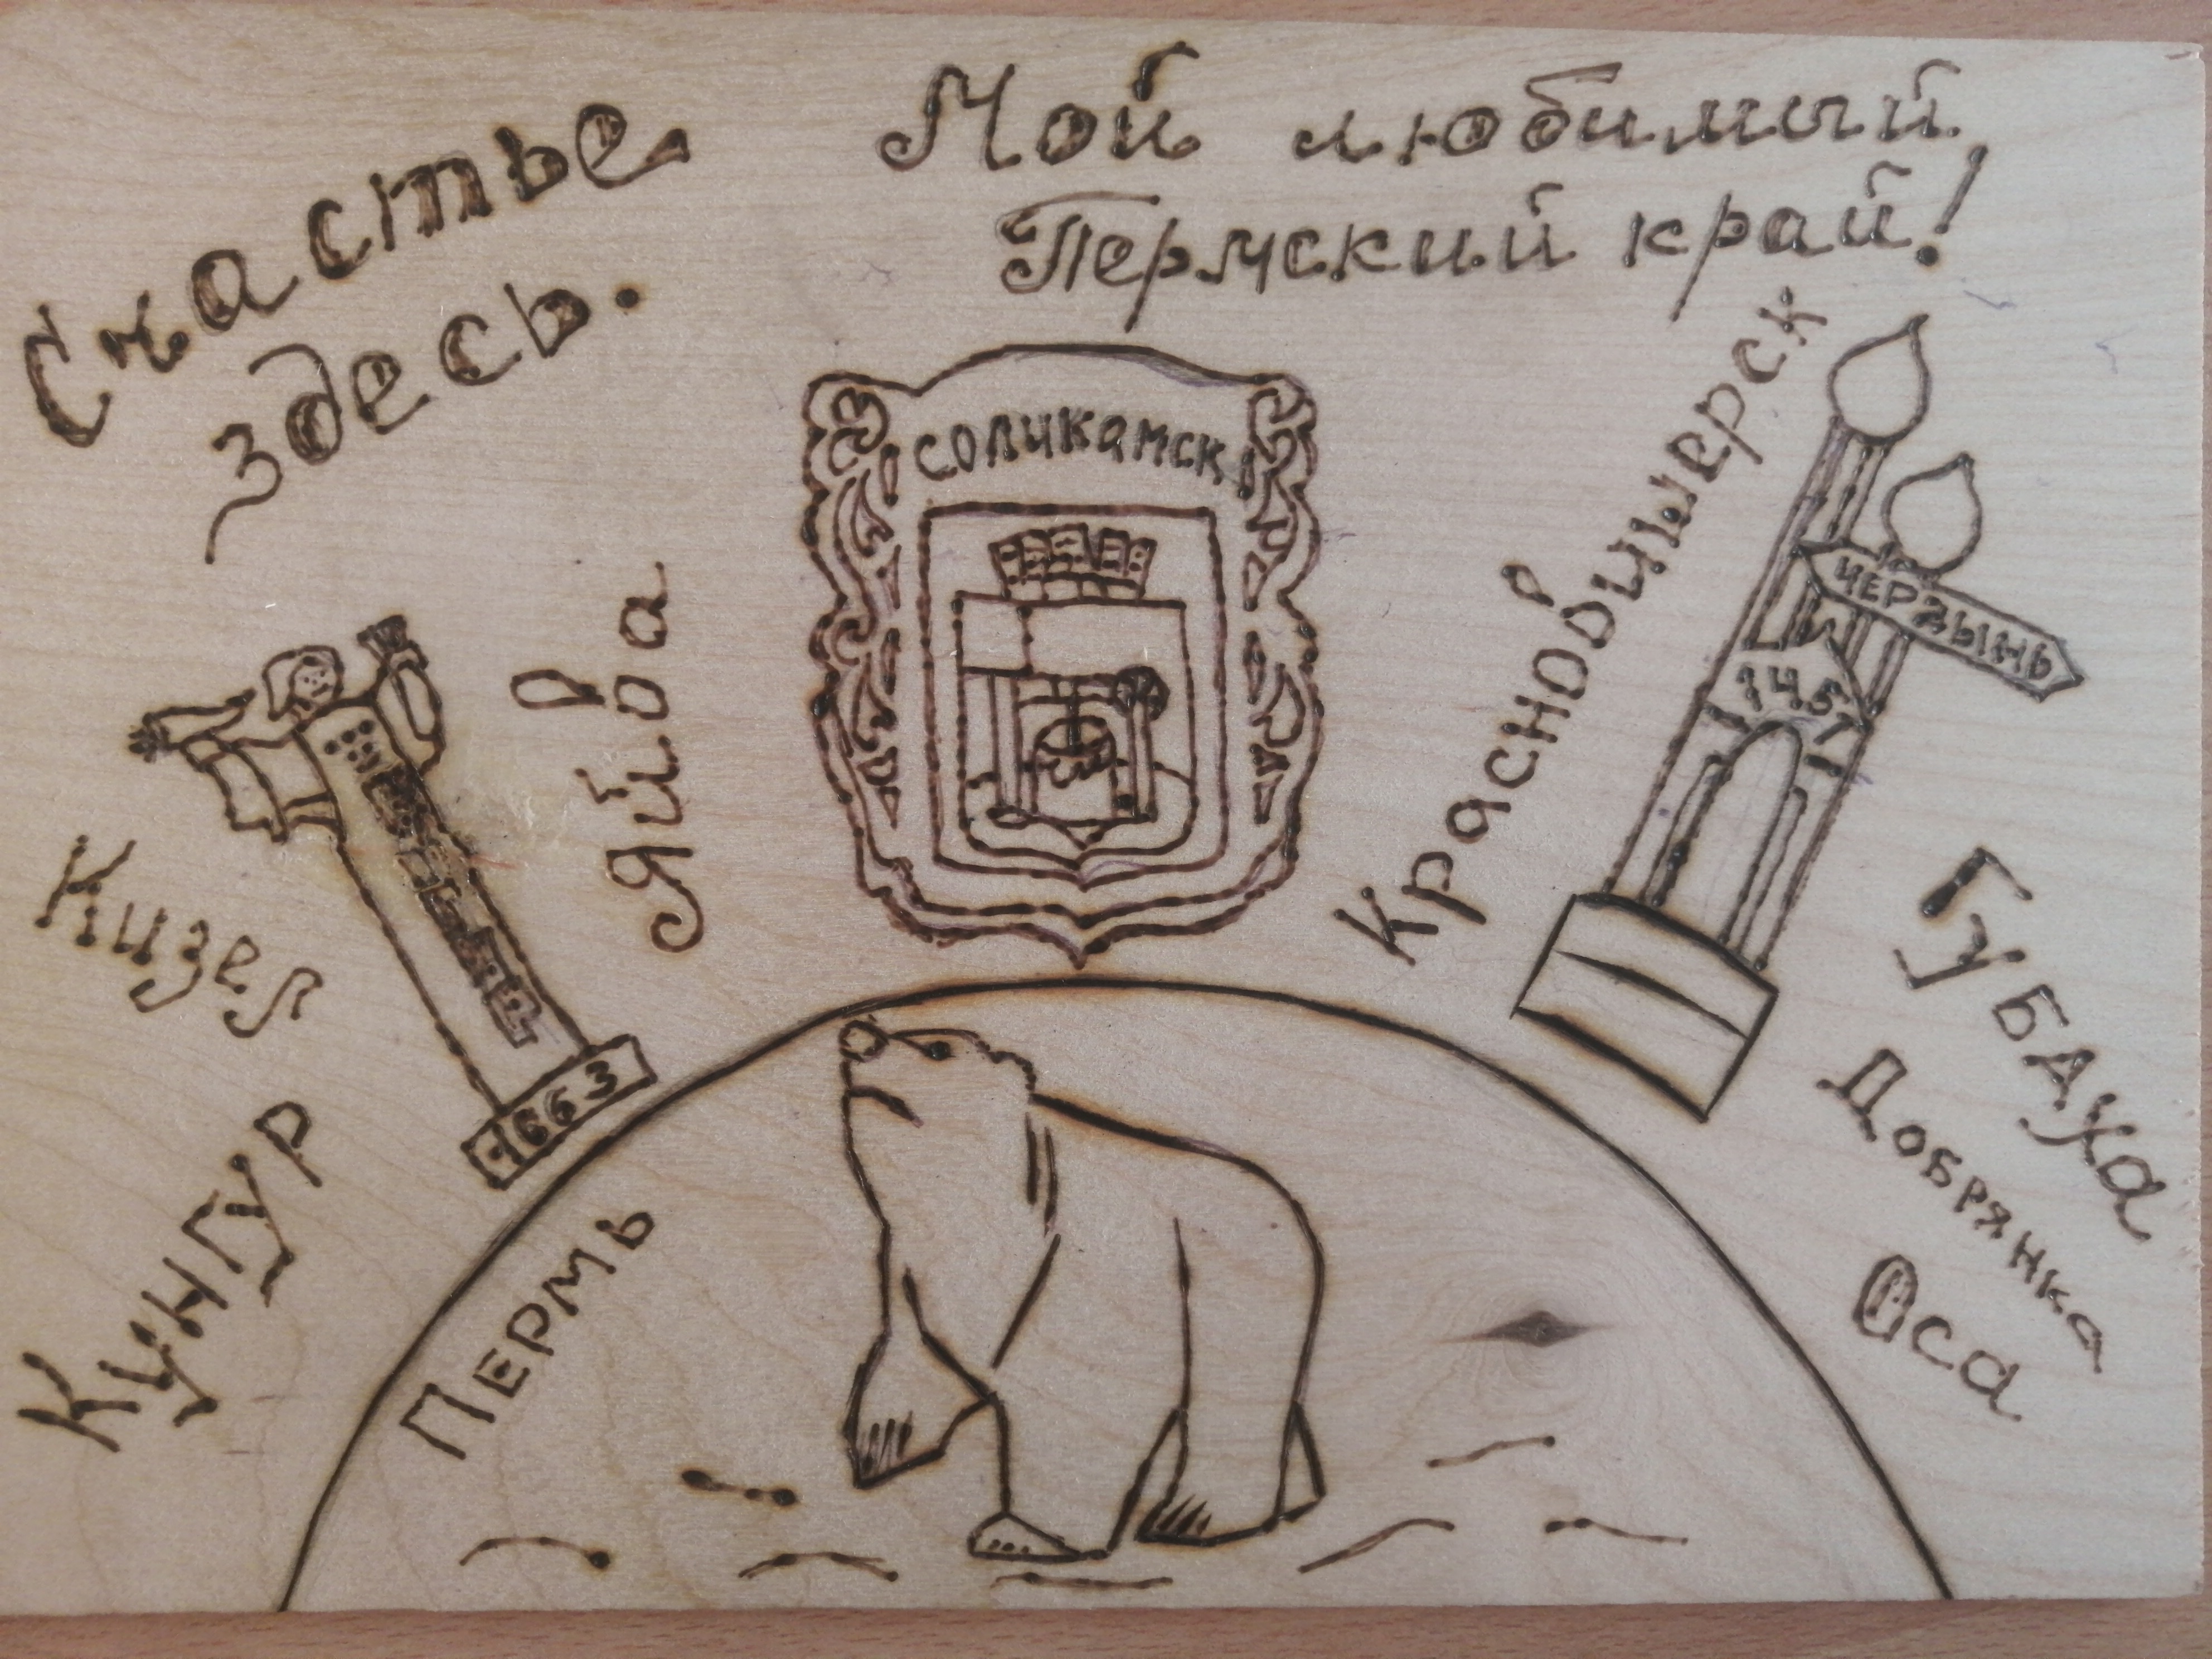 Счастье
здесь.
Мой любимый
Пермский край!
СОЛИКАМСК
Яйва
Кизел
Кунгур
1663
Пермь
Красновишерск
ЧЕРДЫНЬ
1451
Губаха
Добрянка
Оса